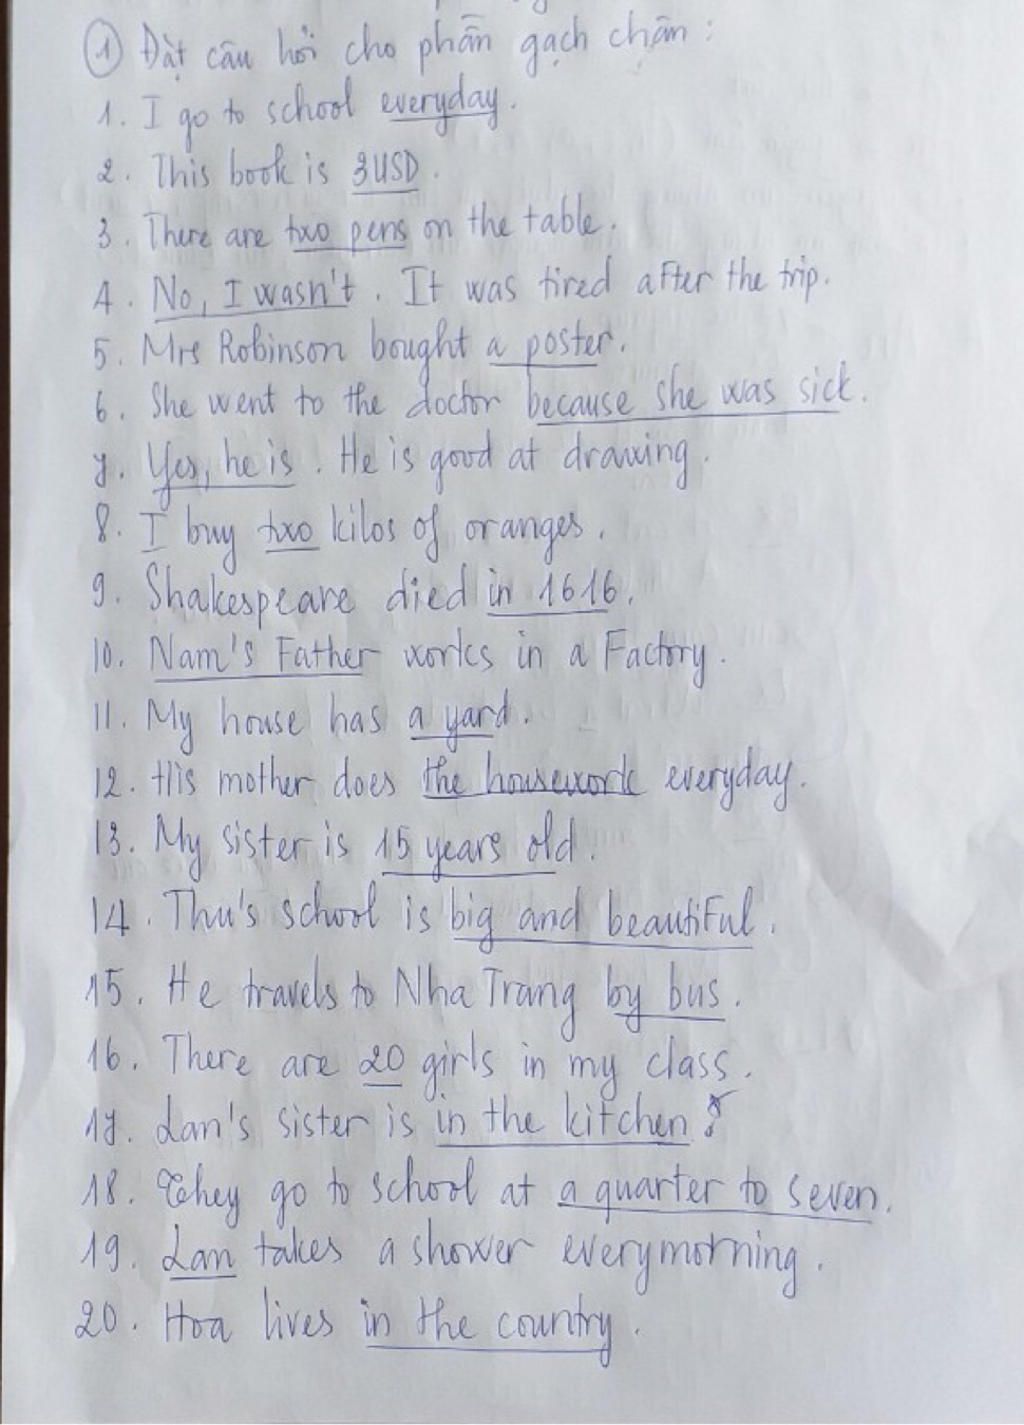 ① Đặt câu hỏi cho phần gạch chân :
1. I go to school everyday.
2. This book is 3USD.
3. There are two pens on the table.
4. No, I wasn't. It was tired after the trip.
5. Mrs Robinson bought a poster.
6. She went to the doctor because she was sick.
7. Yes, he is. He is good at drawing.
8. I buy two kilos of oranges.
9. Shakespeare died in 1616.
10. Nam's Father works in a Factory.
11. My house has a yard.
12. His mother does the housework everyday.
13. My sister is 15 years old.
14. Thu's school is big and beautiful.
15. He travels to Nha Trang by bus.
16. There are 20 girls in my class.
17. Lan's sister is in the kitchen
18. They go to school at a quarter to seven.
19. Lan takes a shower everymorning.
20. Hoa lives in the country.